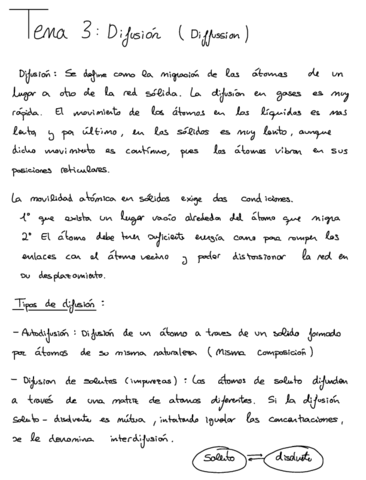 Tema 3: Difusión (Diffussion)
Difusión: Se define como la migración de los átomos de un
lugar a otro de la red sólida. La difusión en gases es muy
rápida. El movimiento de los átomos en los líquidos es mas
lento y por último, en los sólidos es muy lento, aunque
dicho movimiento es continuo, pues los átomos vibran en sus
posiciones reticulares.
La movilidad atómica en sólidos exige dos condiciones.
1º que exista un lugar vacío alrededor del átomo que migra
2º El átomo debe tener suficiente energía como para romper los
enlaces con el átomo vecino y poder distorsionar la red en
su desplazamiento.
Tipos de difusión:
- Autodifusión: Difusión de un átomo a traves de un solido formado
por átomos de su misma naturaleza (Misma composición)
- Difusion de solutos (impurezas): Los átomos de soluto difunden
a través de una matriz de atomos diferentes. Si la difusión
soluto - disolvente es mútua, intentando igualar las concentraciones,
se le denomina interdifusión.
soluto ⇌ disolvente